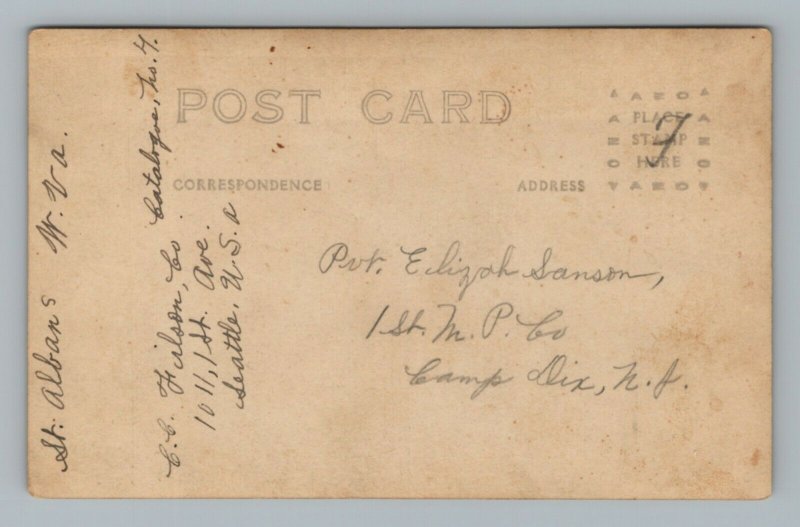 POST CARD
AZO
PLACE
STAMP
HERE
AZO
7
CORRESPONDENCE
ADDRESS
St. Albans W. Va.
C.C. Filson, Co Catalogue, No. 4.
1011, 1St. Ave.
Seattle, U.S.a
Pvt. Elizah Sanson,
1St. M. P. Co
Camp Dix, N. J.